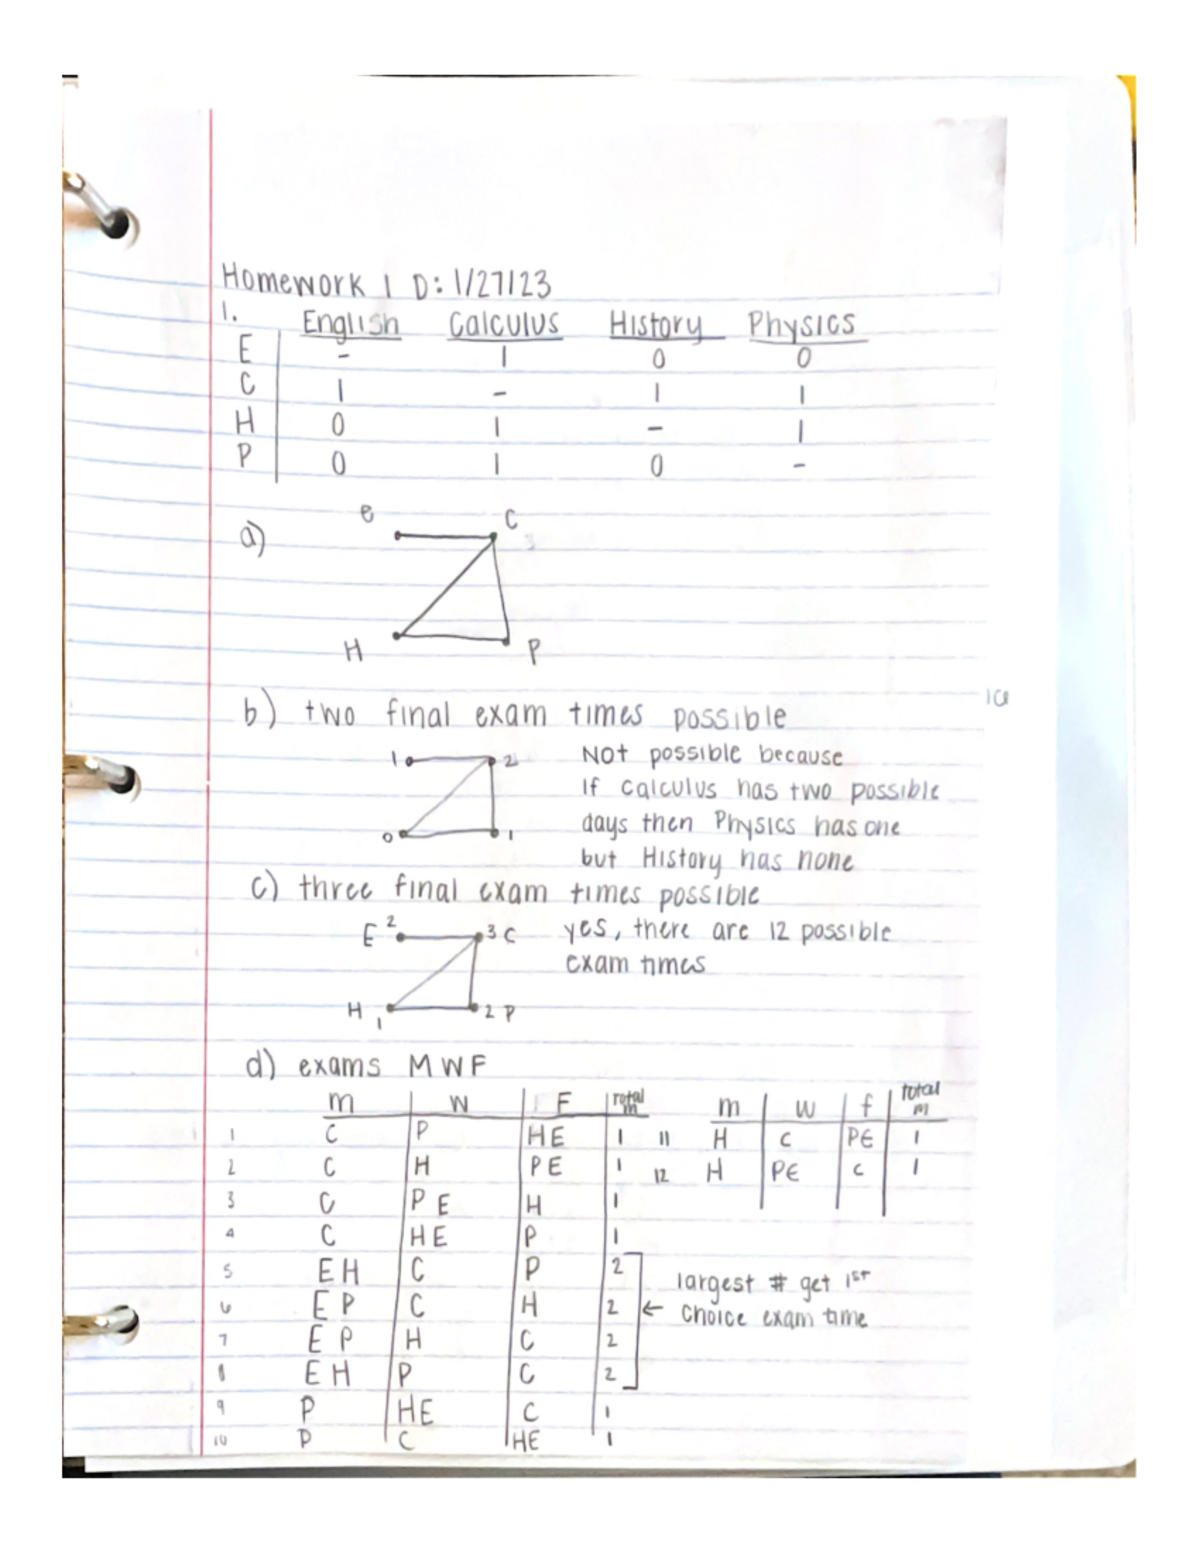 Homework 1 D: 1/27/23
1. English Calculus History Physics
E - 1 0 0
C 1 - 1 1
H 0 1 - 1
P 0 1 0 -
a) e C
H P
b) two final exam times possible
1 2 Not possible because
If calculus has two possible
0 1 days then Physics has one
but History has none
c) three final exam times possible
E 2 3 C yes, there are 12 possible
exam times
H 1 2 P
d) exams MWF
m W F total m m w f total m
1 C P HE 1 11 H C PE 1
2 C H PE 1 12 H PE C 1
3 C PE H 1
4 C HE P 1
5 EH C P 2 largest # get 1st
6 EP C H 2 ← choice exam time
7 EP H C 2
8 EH P C 2
9 P HE C 1
10 P C HE 1